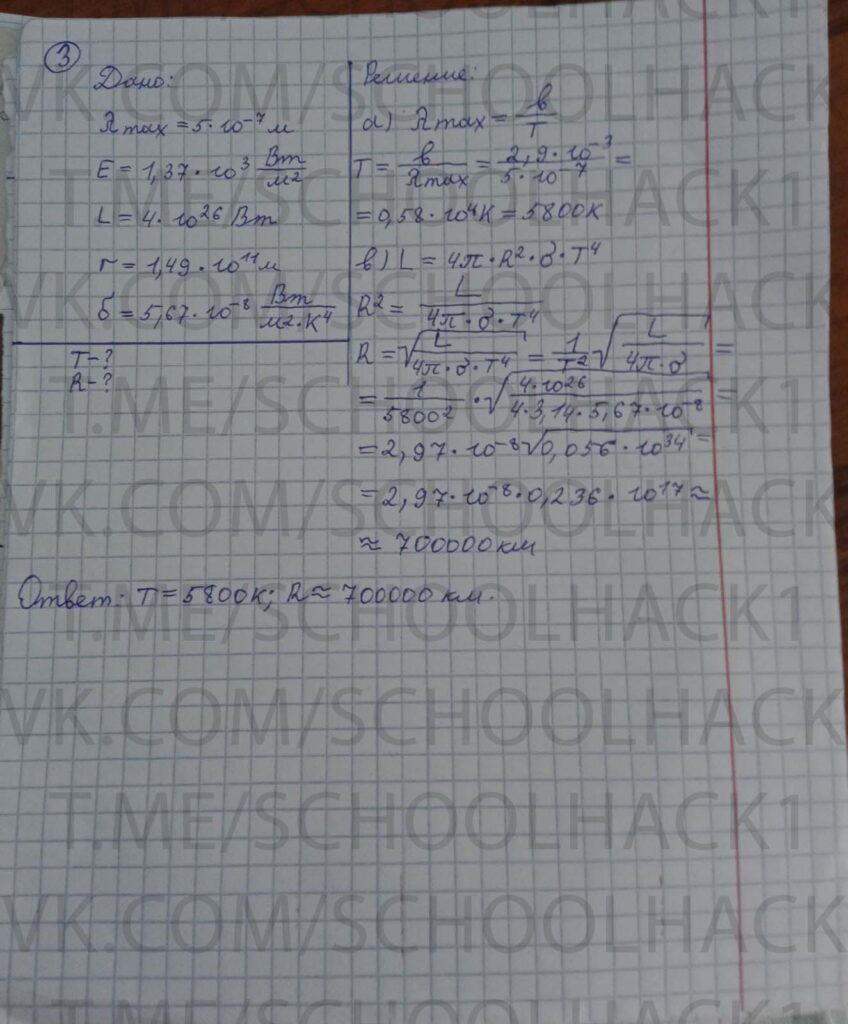 ③
Дано:
λmax = 5·10⁻⁷ м
E = 1,37·10³ Вт/м²
L = 4·10²⁶ Вт
r = 1,49·10¹¹ м
б = 5,67·10⁻⁸ Вт/м²·К⁴
T-?
R-?
Решение:
а) λmax = в/T
T = в/λmax = 2,9·10⁻³/5·10⁻⁷ =
= 0,58·10⁴К = 5800К
в) L = 4π·R²·σ·T⁴
R² = L/4π·σ·T⁴
R = √(L/4π·σ·T⁴) = 1/T² √(L/4π·σ) =
= 1/5800² · √(4·10²⁶/4·3,14·5,67·10⁻⁸) =
= 2,97·10⁻⁸√0,056·10³⁴ =
= 2,97·10⁻⁸·0,236·10¹⁷ ≈
≈ 700000 км
Ответ: T = 5800К; R ≈ 700000 км.
T.ME/SCHOOLHACK1
VK.COM/SCHOOLHACK
T.ME/SCHOOLHACK1
VK.COM/SCHOOLHACK
T.ME/SCHOOLHACK1
VK.COM/SCHOOLHACK
T.ME/SCHOOLHACK1
VK.COM/SCHOOLHACK
T.ME/SCHOOLHACK1
VK.COM/SCHOOLHACK
T.ME/SCHOOLHACK1